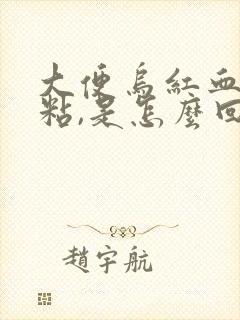 大便烏紅血
粘,是怎麼回
趙宇航